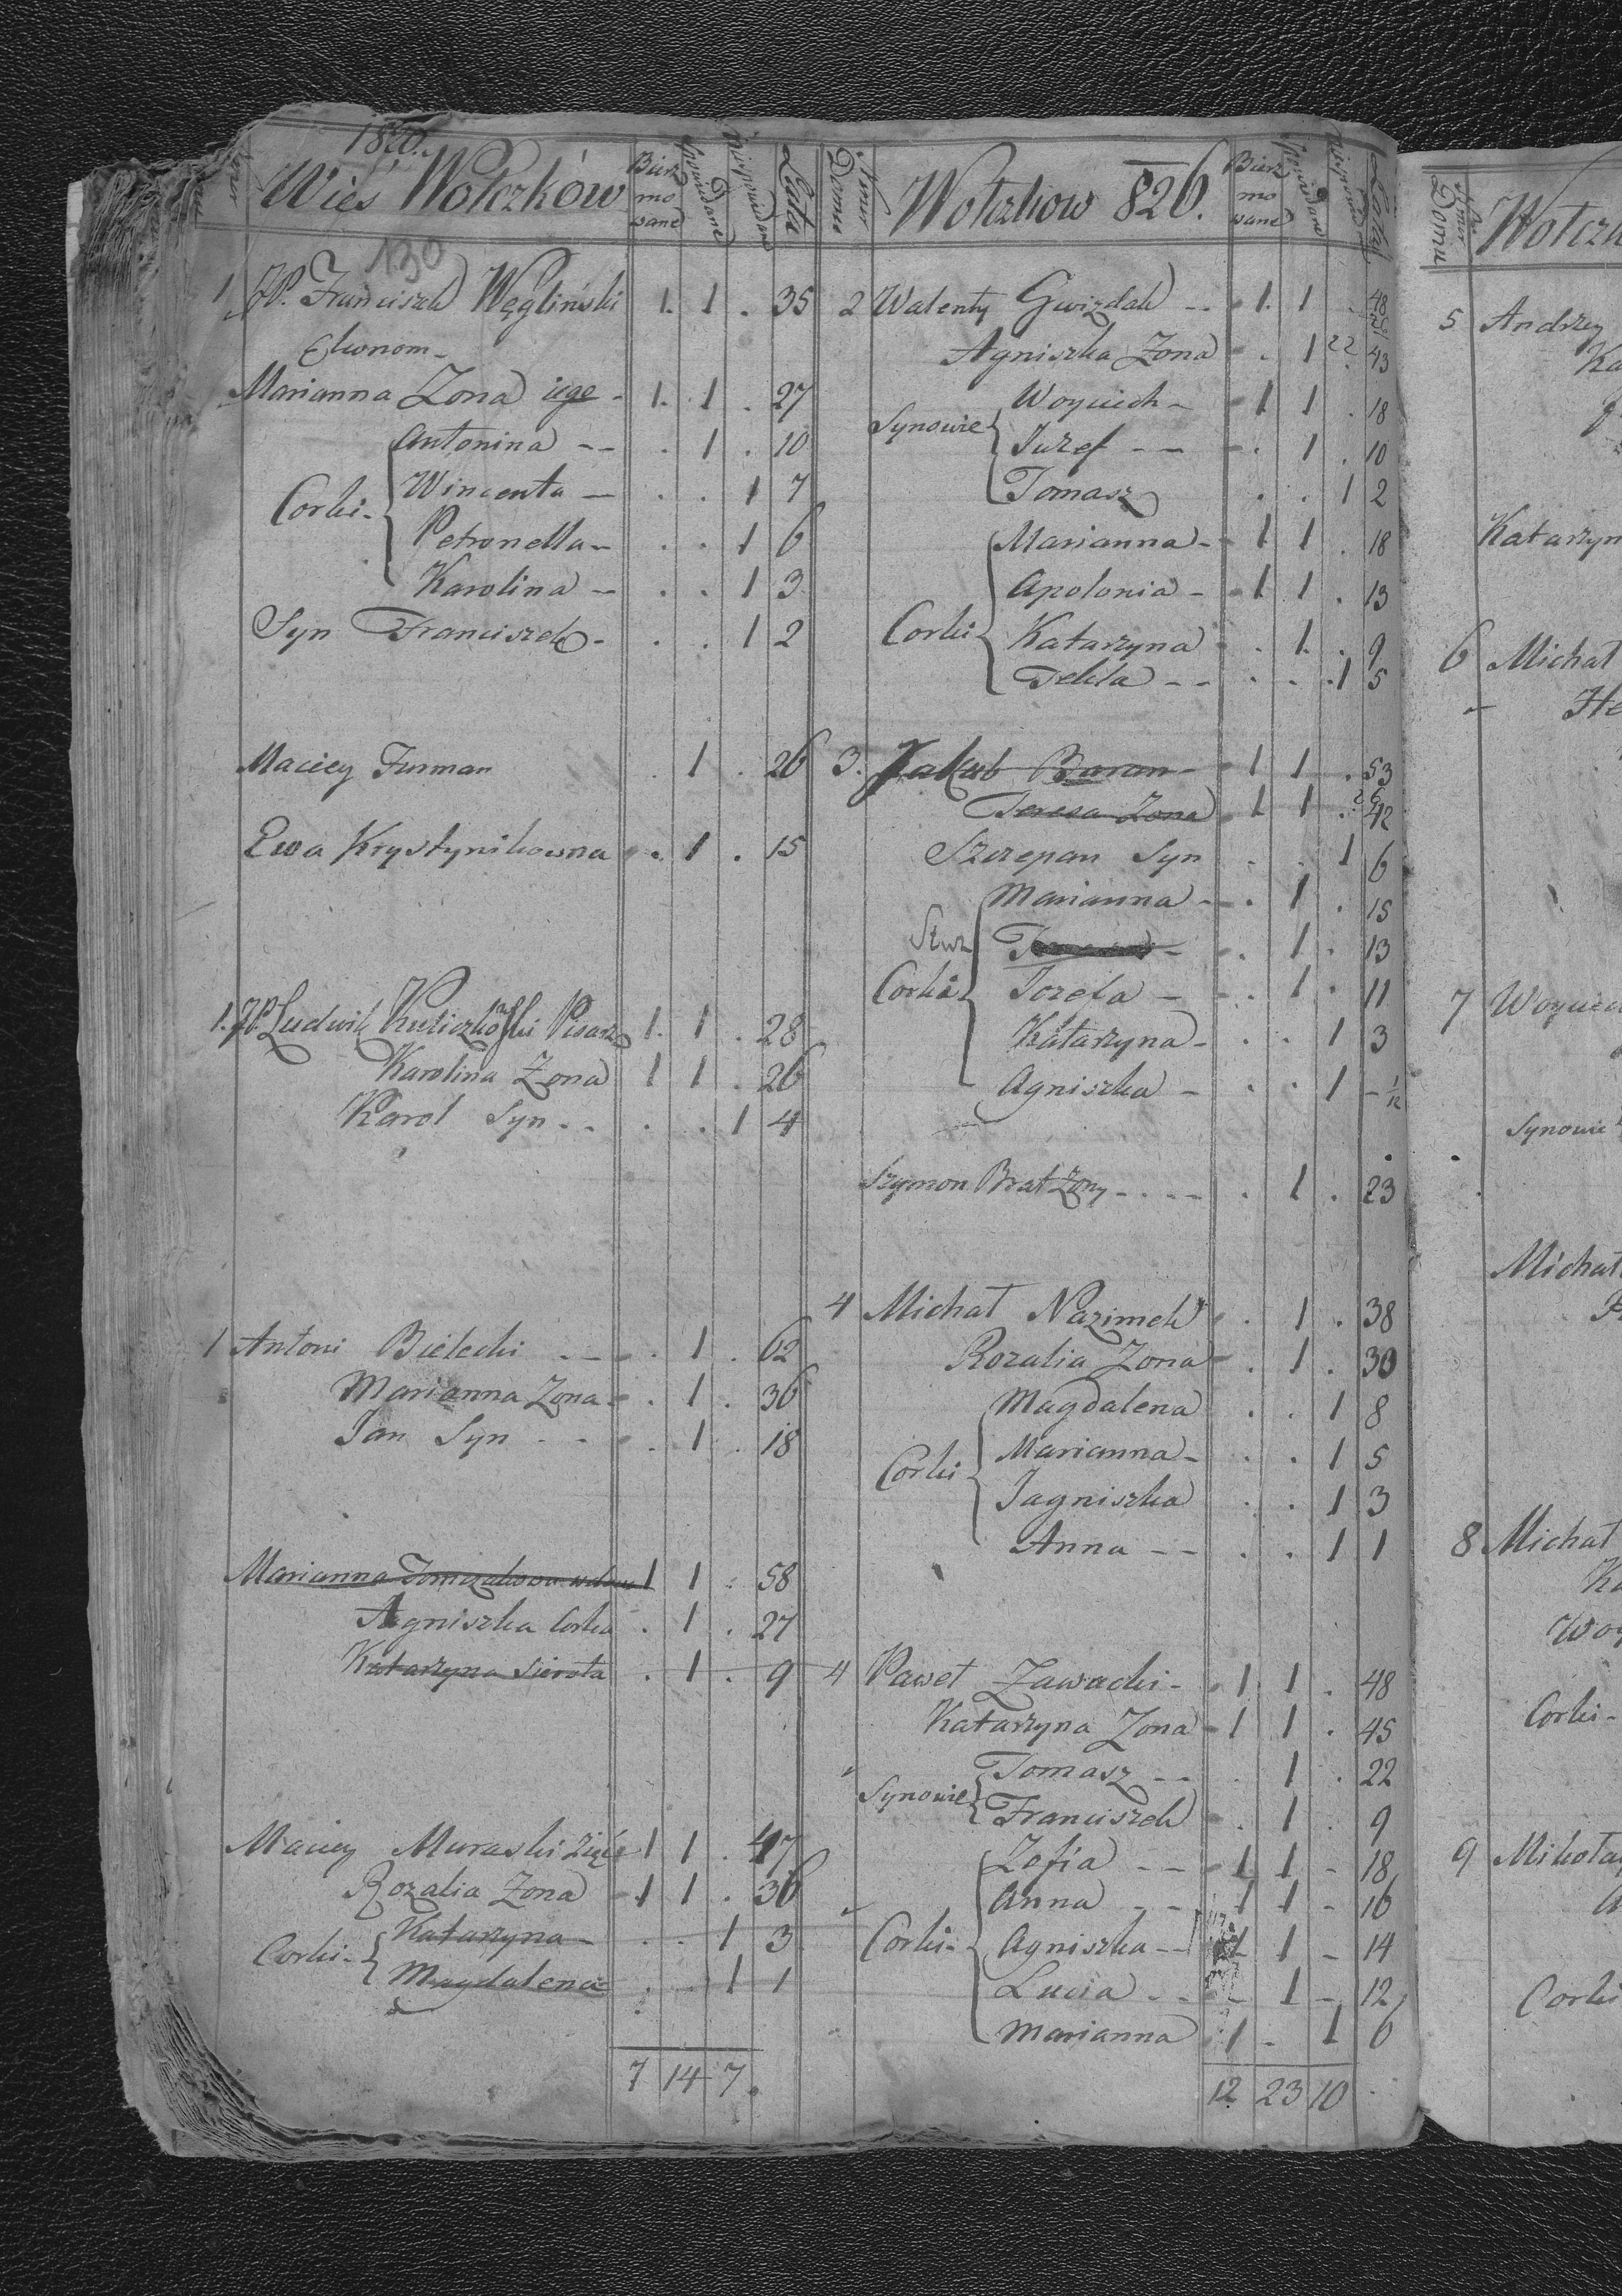 Wieś Wołczków
Bierz
mo
wane
Spowiadane
Niespowiadane
Lata
130
1 JP. Franciszek Węgliński 1. 1 . 35
Ekonom
Marianna Zona iego 1. 1 . 27
Antonina -- . 1 . 10
Corki Wincenta - . . 1 7
Petronella - . . 1 6
Karolina - . . 1 3
Syn Franciszek - . . 1 2
Maciey Furman . 1 . 26
Ewa Krystynikowna . 1 . 15
1. JP Ludwik Pisarz 1. 1 . 28
Karolina Zona 1 1 . 26
Karol Syn . . . . 1 4
1 Antoni Bielecki . 1 . 62
Marianna Zona . 1 . 36
Jan Syn . 1 . 18
Marianna Tomczakowa wdowa 1 1 . 58
Agniszka Corka . 1 . 27
Katarzyna Sierota . 1 . 9
Maciey Muraski 1 1 . 47
Rozalia Zona 1 1 . 36
Corki Katarzyna - . . 1 3
Magdalena . . 1 1
7 14 7.
Numer
Domu
Wołczkow 826.
Bierz
mo
wane
Spowiadane
Lata
2 Walenty Gwizdak -- 1. 1 . 48
Agniszka Zona . 1 22 43
Woyciech - 1 1 . 18
Synowie Iuzef -- . 1 . 10
Tomasz . . 1 2
Marianna - 1 1 . 18
Apolonia - 1 1 . 13
Corki Katarzyna . 1. . 9
Tekla -- . . 1 5
3. Jakub Baran - 1 1 . 53
Teresa Zona 1 1 . 42
Szczepan Syn . . 1 6
Marianna - . 1 . 15
. 1 . 13
Corki Jozefa - . 1 . 11
Katarzyna - . . 1 3
Agniszka - . . 1 - 1/12
Szymon Brat Zony . 1 . 23
4 Michał Nazimek . 1 . 38
Rozalia Zona . 1 . 30
Magdalena . . 1 8
Corki Marianna - . . 1 5
Jagniszka . . 1 3
Anna -- . . 1 1
4 Paweł Zawacki - 1 1 . 48
Katarzyna Zona - 1 1 . 45
Tomasz -- . 1 . 22
Synowie Franciszek . 1 . 9
Zofia -- 1 1 - 18
Anna -- 1 1 - 16
Corki - Agniszka -- 1 1 - 14
Lucia -- - 1 - 12
Marianna 1 - 1 6
12 23 10
Numer
Domu
5 Andrzey
6 Michał
7
Synowie
Michał
8 Michał
Corki -
9
Corki